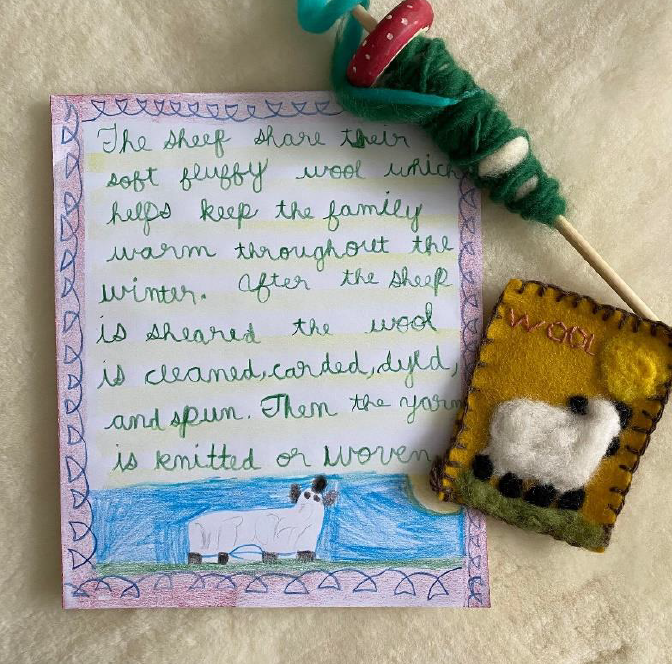 The sheep share their
soft fluffy wool which
helps keep the family
warm throughout the
winter. After the sheep
is sheared the wool
is cleaned, carded, dyed,
and spun. Then the yarn
is knitted or woven.
WOOL